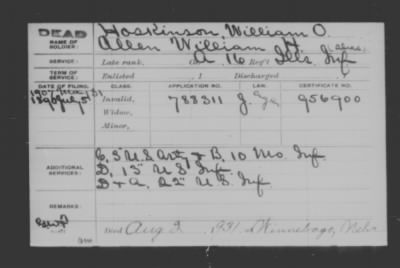 DEAD
NAME OF SOLDIER:
Hoskinson, William O.
Allen William H. (alias)
SERVICE:
Late rank, Co. A 16 Reg't Ills Inf
TERM OF SERVICE:
Enlisted , 1 Discharged , 1
DATE OF FILING. CLASS. APPLICATION NO. LAW. CERTIFICATE NO.
1890 July 5 Invalid, 788311 956900
Widow,
Minor,
ADDITIONAL SERVICES:
C, 5" U.S. Arty & B, 10 Mo. Inf
D, 15" U S Inf
D & A, 22" U.S. Inf
REMARKS:
Died Aug 3 1931, at Winnebago, Nebr